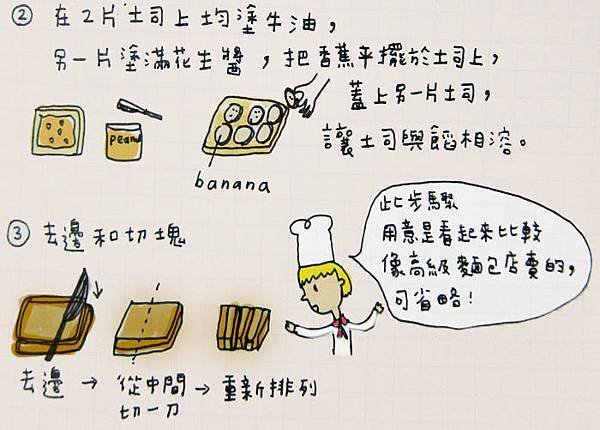 ② 在2片土司上均塗牛油，
另一片塗滿花生醬，把香蕉平擺於土司上，
蓋上另一片土司，
讓土司與餡相溶。
peanu
banana
③ 去邊和切塊
此步驟
用意是看起來比較
像高級麵包店賣的，
可省略！
去邊 → 從中間切一刀 → 重新排列